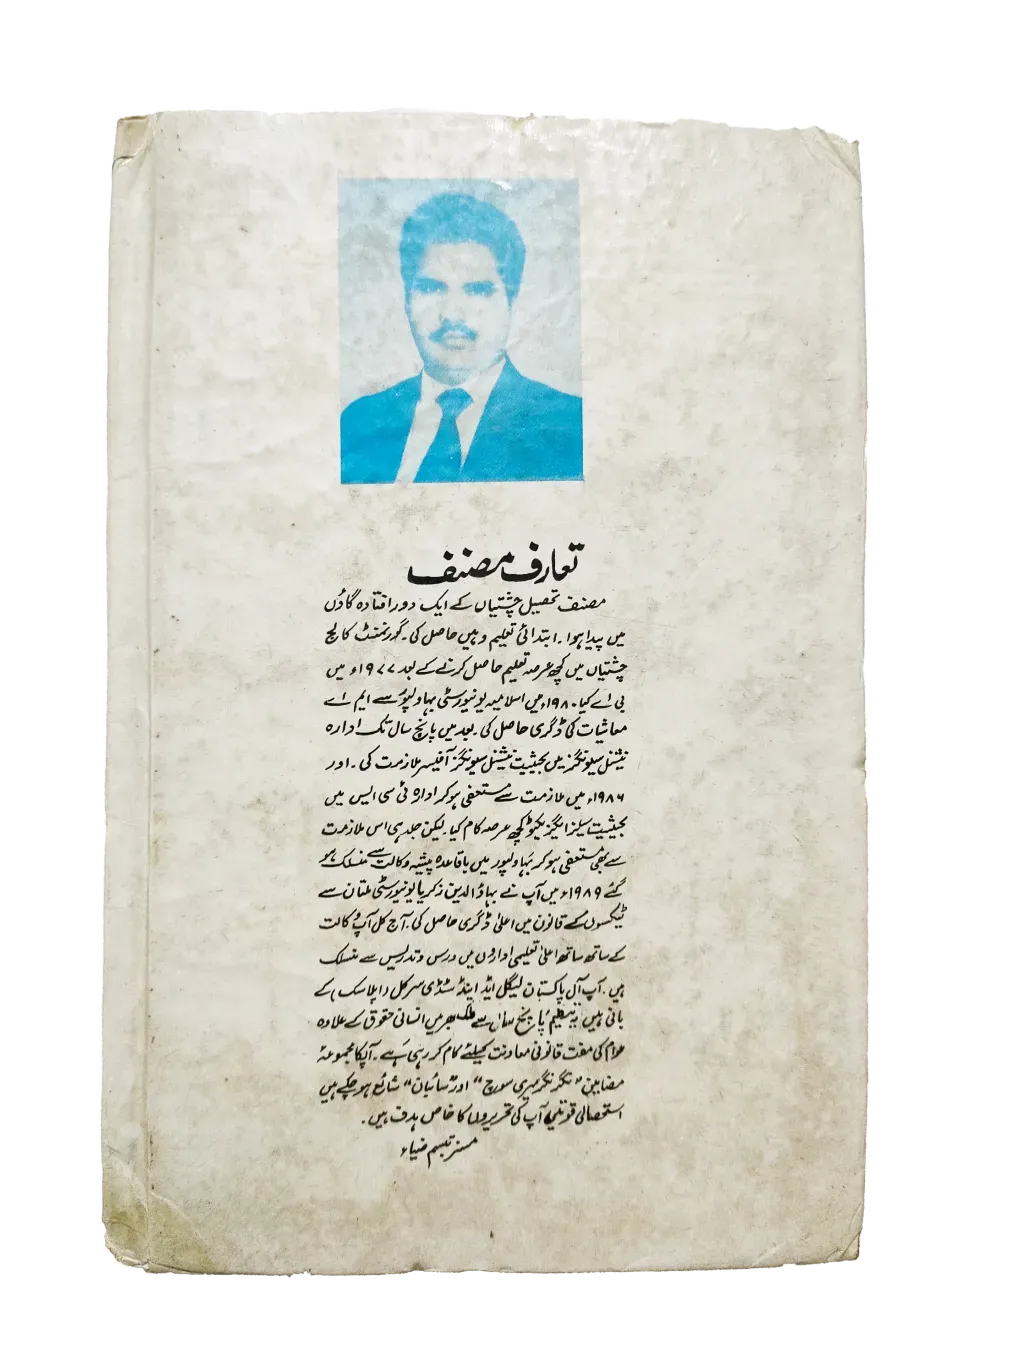 تعارف مصنف
مصنف تحصیل چشتیاں کے ایک دور افتادہ گاؤں
میں پیدا ہوا ۔ ابتدائی تعلیم وہیں حاصل کی ۔ گورنمنٹ کالج
چشتیاں میں کچھ عرصہ تعلیم حاصل کرنے کے بعد ۱۹۷۷ء میں
بی اے کیا ۔ ۱۹۸۰ء میں اسلامیہ یونیورسٹی بہاولپور سے ایم اے
معاشیات کی ڈگری حاصل کی ۔ بعد میں پانچ سال تک ادارہ
نیشنل سیونگز میں بحیثیت نیشنل سیونگز آفیسر ملازمت کی ۔ اور
۱۹۸۶ء میں ملازمت سے مستعفی ہو کر ادارہ ٹی سی ایس میں
بحیثیت سیلز ایگزیکٹو کچھ عرصہ کام کیا ۔ لیکن جلد ہی اس ملازمت
سے بھی مستعفی ہو کر بہاولپور میں باقاعدہ پیشہ وکالت سے منسلک ہو
گئے ۱۹۸۹ء میں آپ نے بہاؤالدین زکریا یونیورسٹی ملتان سے
ٹیکسوں کے قانون میں اعلیٰ ڈگری حاصل کی ۔ آج کل آپ وکالت
کے ساتھ ساتھ اعلیٰ تعلیمی اداروں میں درس و تدریس سے منسلک
ہیں ۔ آپ آل پاکستان لیگل ایڈ اینڈ سٹڈی سرکل (اپلاسک) کے
بانی ہیں یہ تنظیم پانچ سال سے ملک بھر میں انسانی حقوق کے علاوہ
عوام کی مفت قانونی معاونت کیلئے کام کر رہی ہے ۔ آپکا مجموعۂ
مضامین "نگر نگر میری سوچ" اور "سائبان" شائع ہو چکے ہیں
استحصالی قوتیں آپ کی تحریروں کا خاص ہدف ہیں ۔
مسز تبسم ضیاء